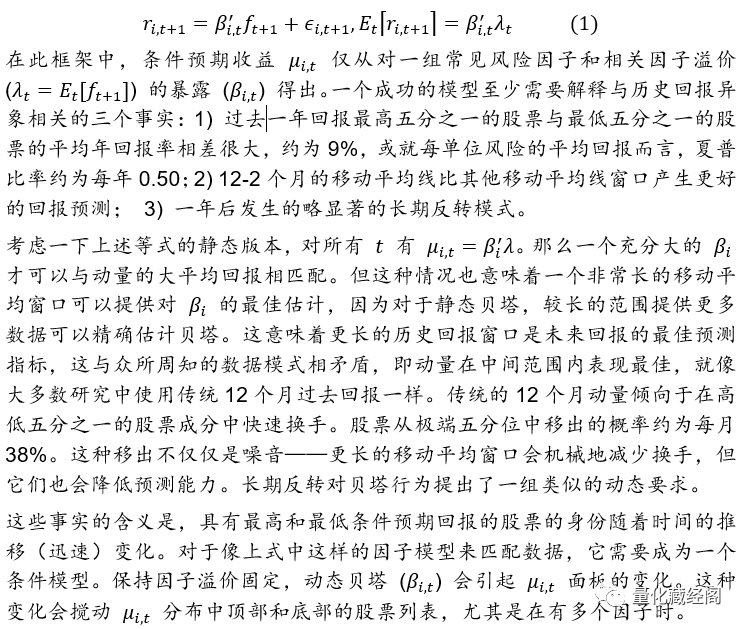 r_{i,t+1} = β′_{i,t}f_{t+1} + ϵ_{i,t+1}, E_t[r_{i,t+1}] = β′_{i,t}λ_t (1)
在此框架中，条件预期收益 μ_{i,t} 仅从对一组常见风险因子和相关因子溢价
(λ_t = E_t[f_{t+1}]) 的暴露 (β_{i,t}) 得出。一个成功的模型至少需要解释与历史回报异
象相关的三个事实：1) 过去一年回报最高五分之一的股票与最低五分之一的股
票的平均年回报率相差很大，约为 9%，或就每单位风险的平均回报而言，夏普
比率约为每年 0.50；2) 12-2 个月的移动平均线比其他移动平均线窗口产生更好
的回报预测； 3) 一年后发生的略显著的长期反转模式。
考虑一下上述等式的静态版本，对所有 t 有 μ_{i,t} = β′_iλ。那么一个充分大的 β_i
才可以与动量的大平均回报相匹配。但这种情况也意味着一个非常长的移动平
均窗口可以提供对 β_i 的最佳估计，因为对于静态贝塔，较长的范围提供更多
数据可以精确估计贝塔。这意味着更长的历史回报窗口是未来回报的最佳预测
指标，这与众所周知的数据模式相矛盾，即动量在中间范围内表现最佳，就像
大多数研究中使用传统 12 个月过去回报一样。传统的 12 个月动量倾向于在高
低五分之一的股票成分中快速换手。股票从极端五分位中移出的概率约为每月
38%。这种移出不仅仅是噪音——更长的移动平均窗口会机械地减少换手，但
它们也会降低预测能力。长期反转对贝塔行为提出了一组类似的动态要求。
这些事实的含义是，具有最高和最低条件预期回报的股票的身份随着时间的推
移（迅速）变化。对于像上式中这样的因子模型来匹配数据，它需要成为一个
条件模型。保持因子溢价固定，动态贝塔 (β_{i,t}) 会引起 μ_{i,t} 面板的变化。这种
变化会搅动 μ_{i,t} 分布中顶部和底部的股票列表，尤其是在有多个因子时。
量化藏经阁